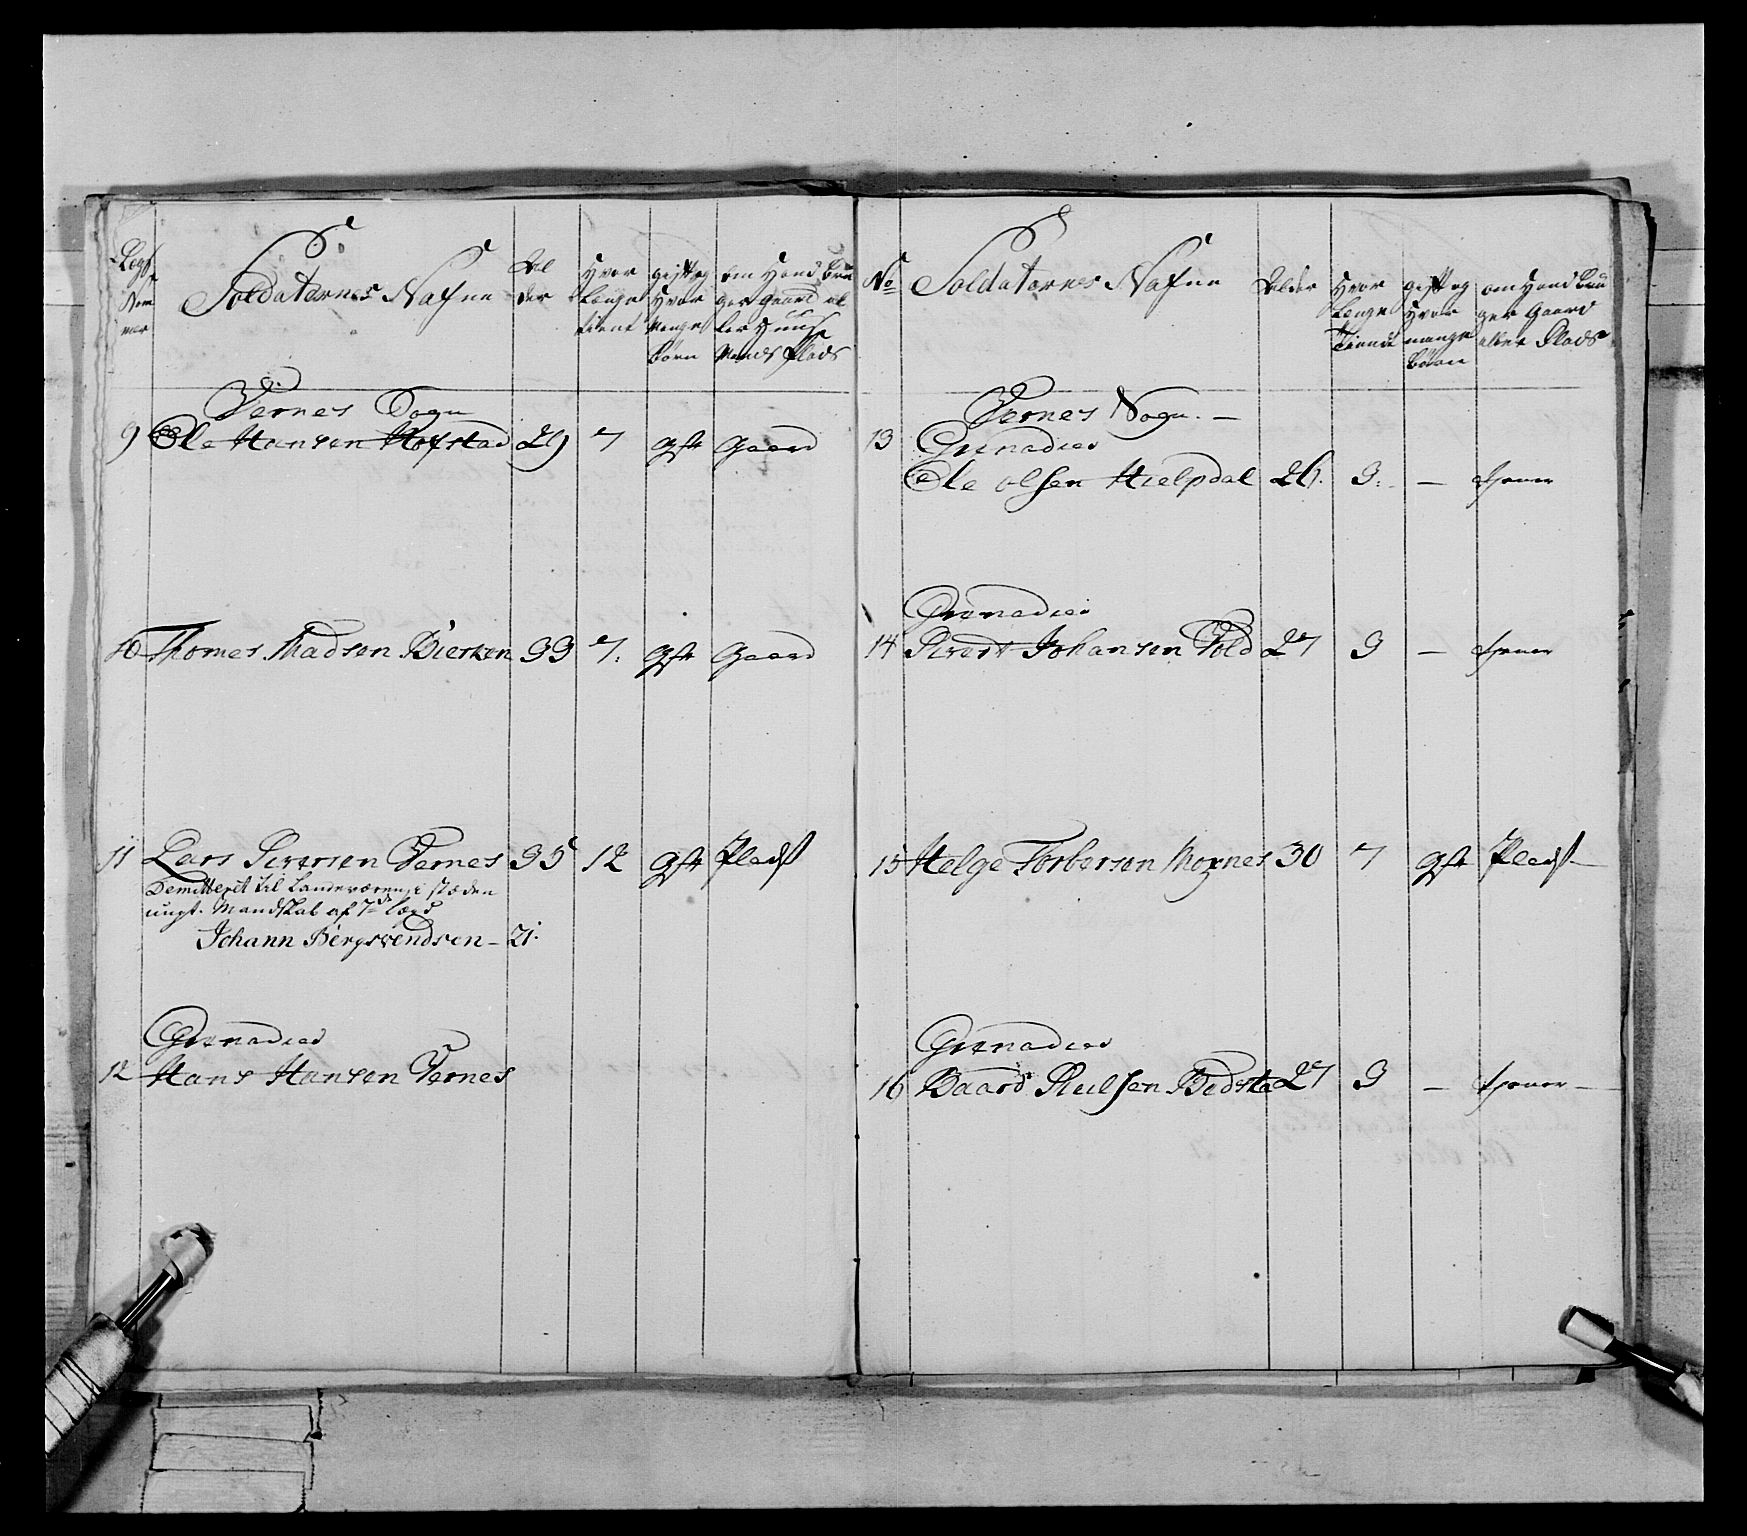 Lægs Nommer
Soldaternes Nafne
Alder
Hvor Længe tient
gift og Hvor Mange Børn
om Hand Bruger Gaard eller Huuse Mands Plads
Vernes Sogn
9 Ole Hansen Hofstad 29 7 gift Gaard
10 Thomes Madsen Bierken 33 7. gift Gaard
11 Lars Siversen Vernes 35 12 gift Pladß
Demitteret til Landeværen, i stæden
ungt. Mandskab af 7de Lægd
Johann Bergsvendsen – 21.
Grenadeer
12 Hans Hansen Vernes
No
Soldaternes Nafne
Alder
Hvor Længe Tiendt
gift og Hvor mange Børn
om Hand Bruger Gaard eller Plads
Vernes Sogn. –
13 Grenadeer
Ole Olsen Hielpdal 26. 3. – thener
Grenadeer
14 Sivert Johansen Vold 27 3 – thener
15 Helge Torbersen Moxnes 30 7 gift Pladß –
Grenadeer
16 Baard Pulsen Bidsta 27 3 – thener –